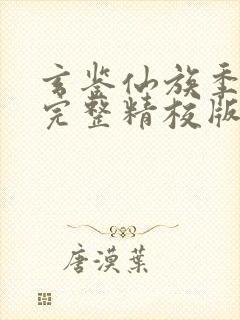 玄鉴仙族季
完整精校版
唐漠葉